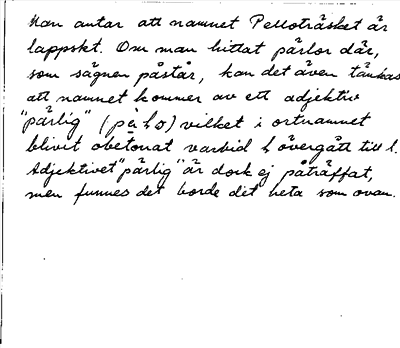 Man antar att namnet Pelloträsket är
lappskt. Om man hittat pärlor där,
som sägnen påstår, kan det även tänkas
att namnet kommer av ett adjektiv
"pärlig" vilket i ortnamnet
blivit obetonat varvid övergått till l.
Adjektivet "pärlig" är dock ej påträffat,
men funnes det borde det heta som ovan.